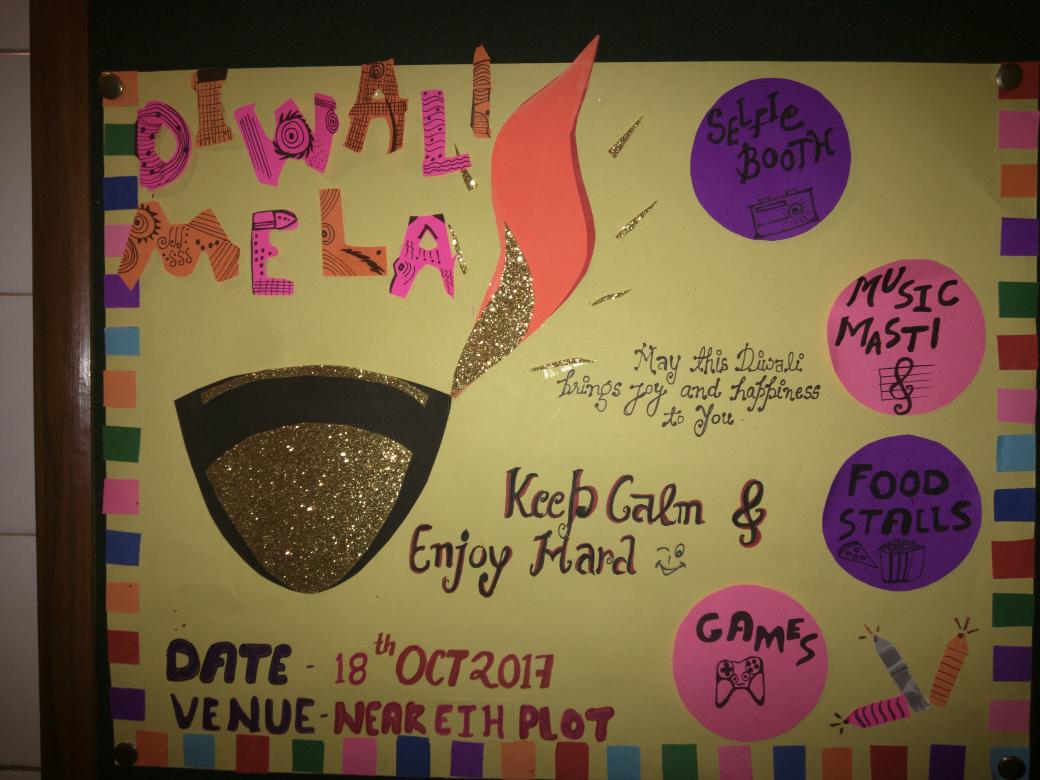 DIWALI
MELA
SELFIE
BOOTH
MUSIC
MASTI
May this Diwali
brings joy and happiness
to You
Keep Calm &
Enjoy Hard
FOOD
STALLS
GAMES
DATE - 18th OCT 2017
VENUE - NEAR EIH PLOT